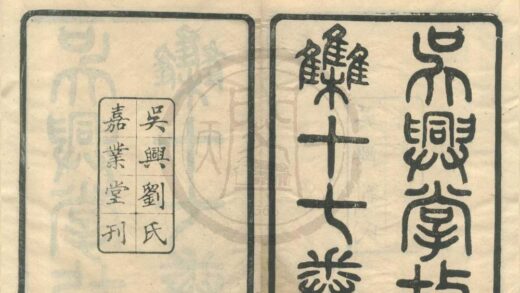 吳興掌故
集十七卷
吳興劉氏
嘉業堂刊